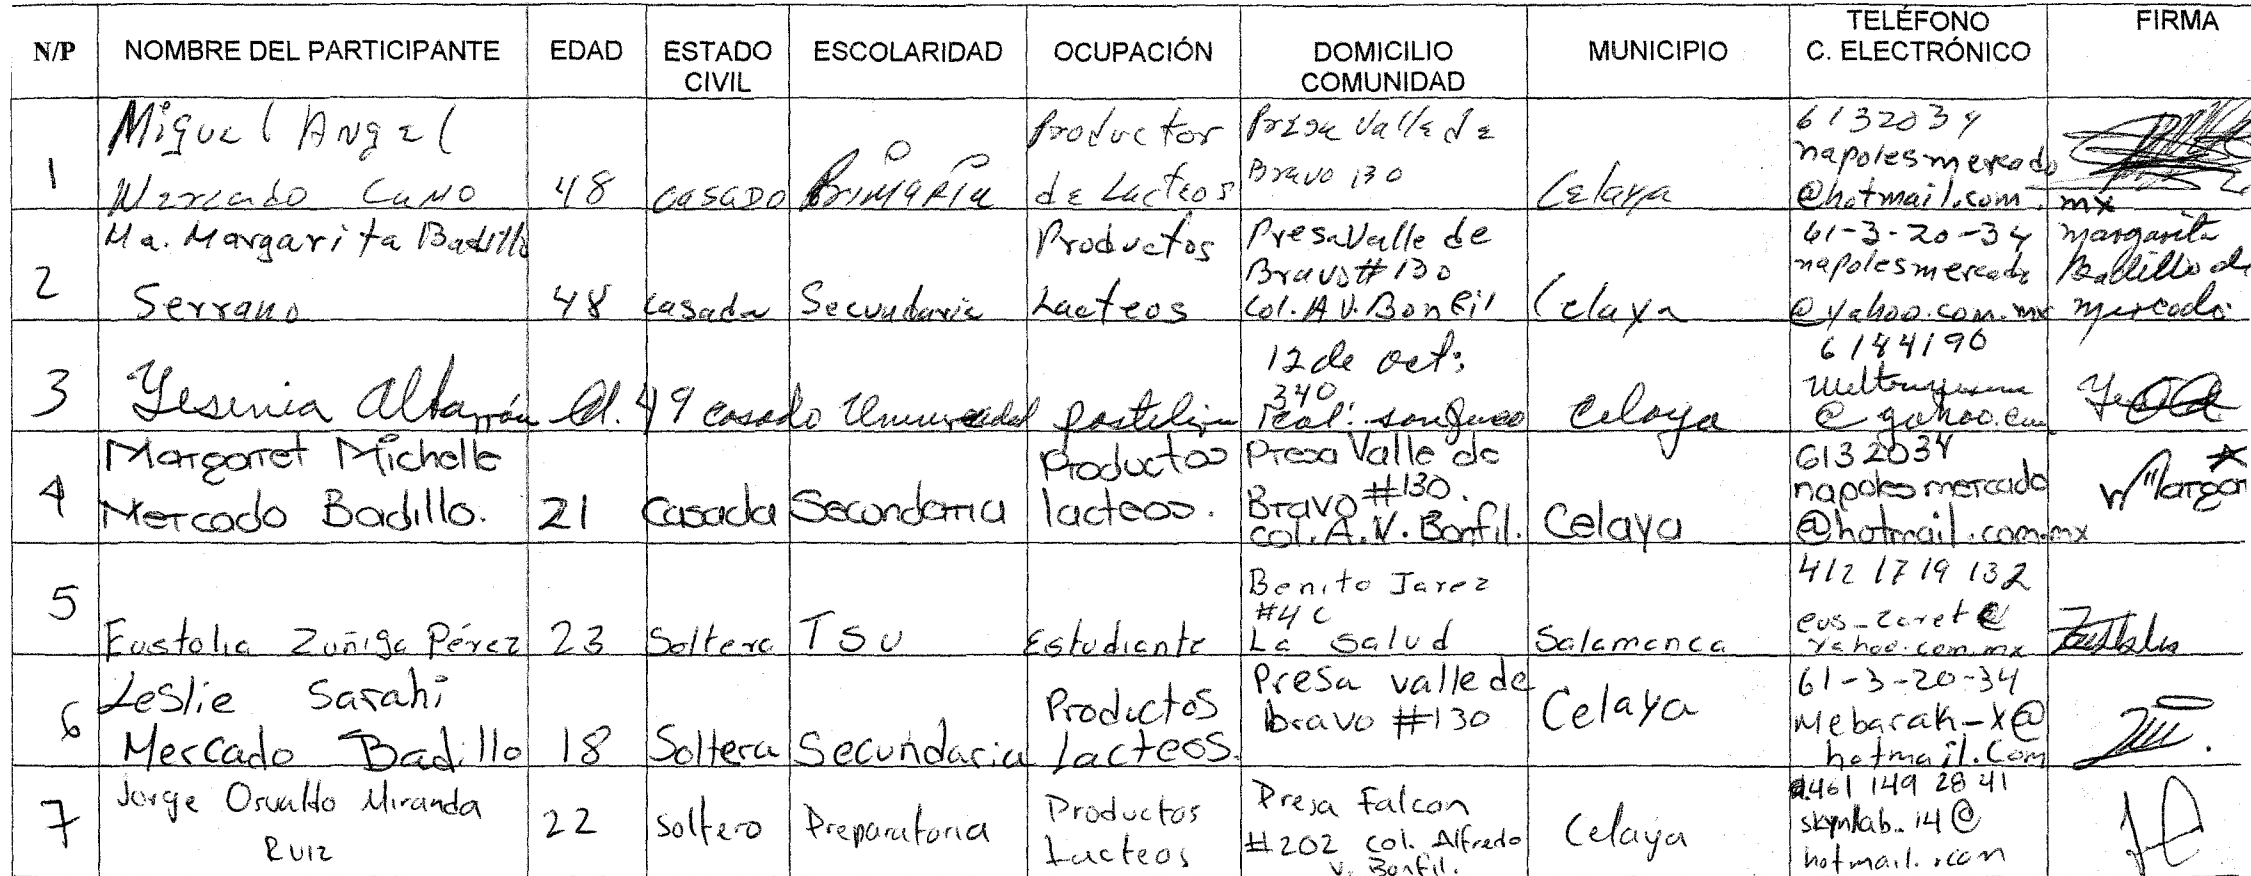 N/P NOMBRE DEL PARTICIPANTE EDAD ESTADO CIVIL ESCOLARIDAD OCUPACIÓN DOMICILIO COMUNIDAD MUNICIPIO TELÉFONO C. ELECTRÓNICO FIRMA
1 Miguel Angel Mercado Cano 48 casado Primaria Productor de Lacteos Presa Valle de Bravo 130 Celaya 6132034 napolesmercado@hotmail.com.mx
2 Ma. Margarita Badillo Serrano 48 casada Secundaria Productos Lacteos Presa Valle de Bravo #130 Col. A V. Bonfil Celaya 61-3-20-34 napolesmercado@yahoo.com.mx Margarita Badillo de Mercado
3 Yesenia 49 casado 12 de oct. 340 Celaya 6184190
4 Margaret Michelle Mercado Badillo. 21 Casada Secundaria Productos lacteos. Presa Valle de Bravo #130. col. A. V. Bonfil. Celaya 6132034 napoles mercado @hotmail.com.mx Margar
5 Eustolia Zuñiga Pérez 23 Soltera TSU Estudiante Benito Jarez #4C La Salud Salamanca 412 17 19 132 eus_zaret@ yahoo.com.mx
6 Leslie Sarahi Mercado Badillo 18 Soltera Secundaria Productos Lacteos. Presa valle de bravo #130 Celaya 61-3-20-34 Mebarak-X@ hotmail.com
7 Jorge Osvaldo Miranda Ruiz 22 soltero Preparatoria Productos Lacteos Presa Falcon #202 col. Alfredo V. Bonfil. Celaya 461 149 28 41 hotmail.com